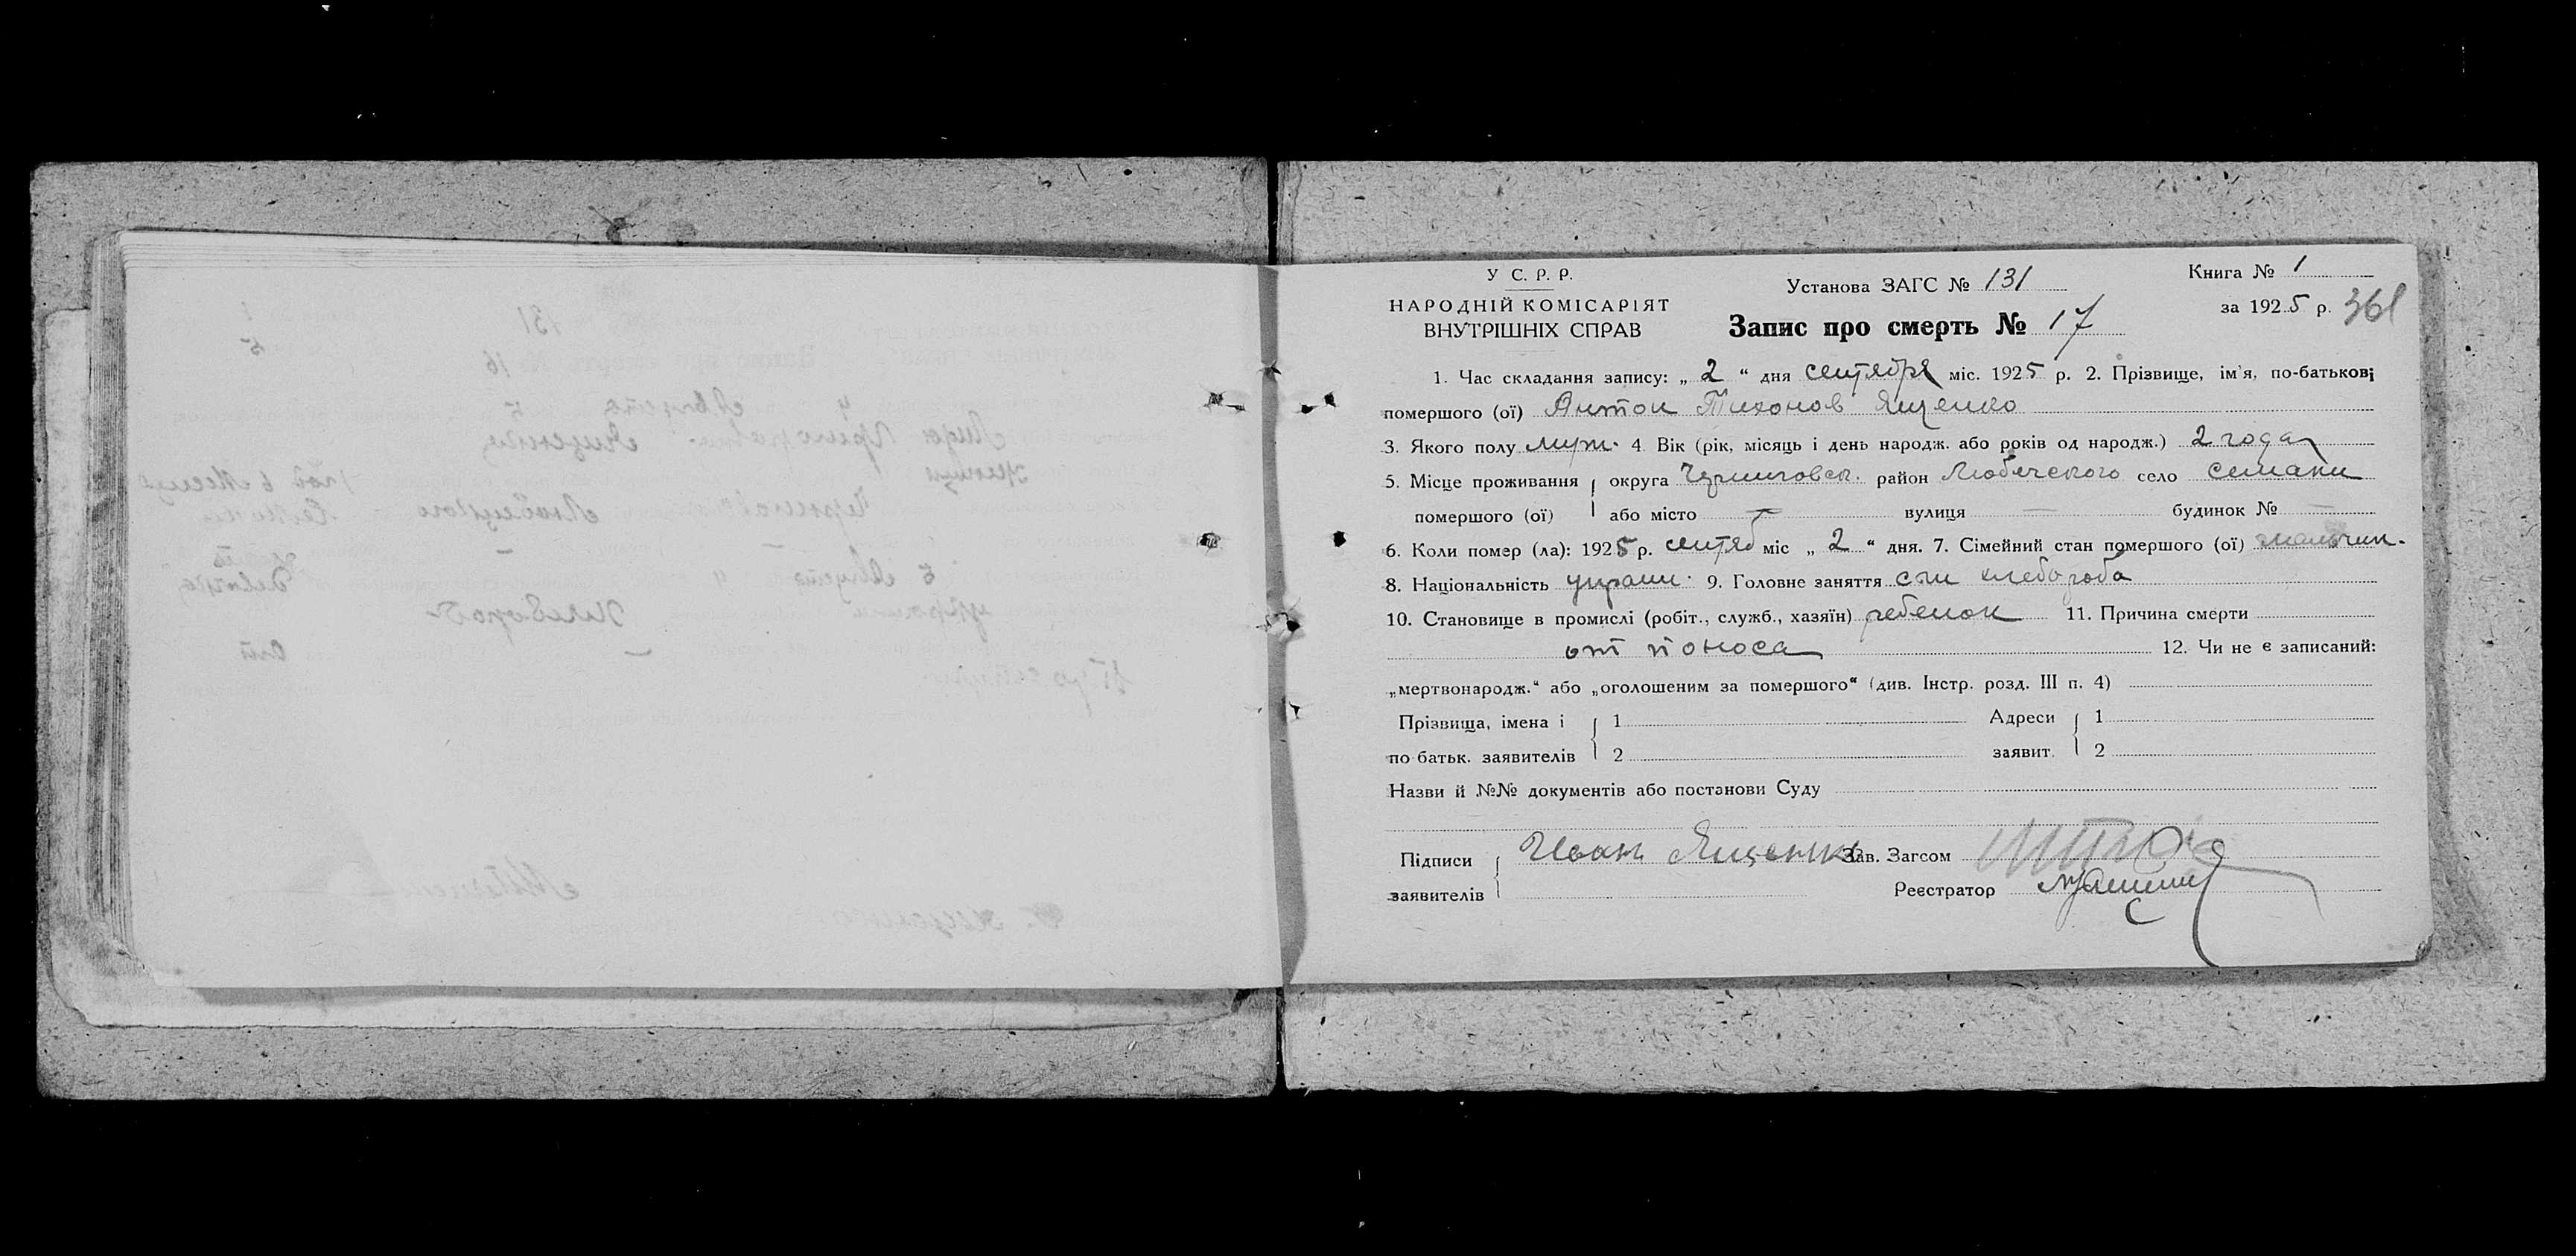 У С. Р. Р.
НАРОДНІЙ КОМІСАРІЯТ
ВНУТРІШНІХ СПРАВ
Установа ЗАГС № 131
Запис про смерть № 17
Книга № 1
за 1925 р. 361
1. Час складання запису: „ 2 “ дня сентября міс. 1925 р. 2. Прізвище, ім'я, по-батькові
помершого (ої) Антон Тихонов Ященко
3. Якого полу муж. 4 Вік (рік, місяць і день народж. або років од народж.) 2 года
5. Місце проживання округа Черниговск. район Любечского село Семаки
помершого (ої) або місто — вулиця — будинок № —
6. Коли помер (ла): 1925 р. сентяб міс „ 2 “ дня. 7. Сімейний стан помершого (ої) мальчик.
8. Національність украин. 9. Головне заняття сын хлебороба
10. Становище в промислі (робіт., служб., хазяїн) ребенок 11. Причина смерти
от поноса 12. Чи не є записаний:
„мертвонародж.“ або „оголошеним за помершого“ (див. Інстр. розд. III п. 4)
Прізвища, імена і 1 Адреси 1
по батьк. заявителів 2 заявит. 2
Назви й №№ документів або постанови Суду
Підписи Иван Ященко Зав. Загсом
заявителів Реєстратор